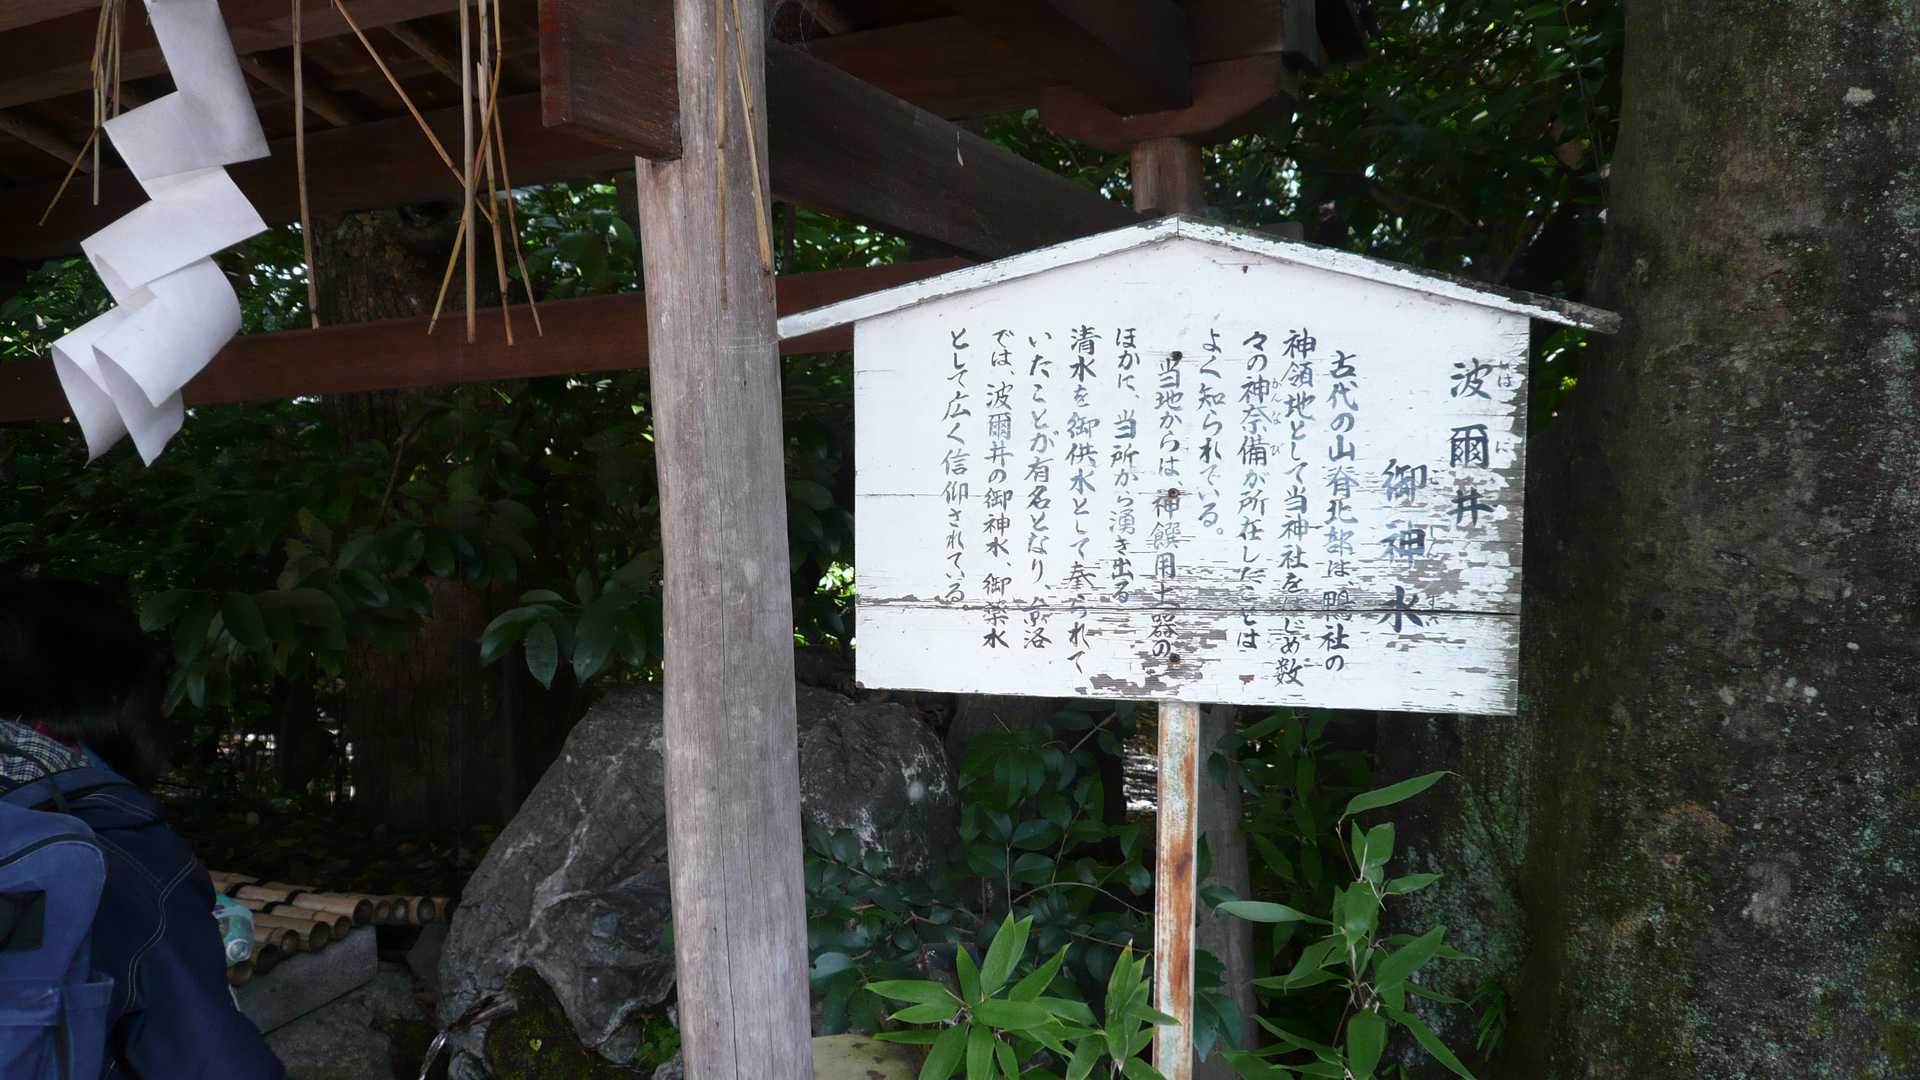 波爾井
御神水
古代の山脊北部は、鴨社の
神領地として当神社をはじめ数
々の神奈備が所在したことは
よく知られている。
当地からは、神饌用土器の
ほかに、当所から湧き出る
清水を御供水として奉られて
いたことが有名となり、京洛
では、波爾井の御神水、御薬水
として広く信仰されている。